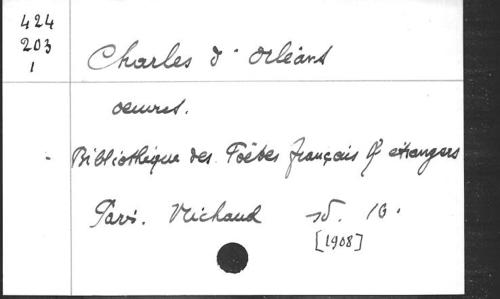 424
203
1
Charles d'Orléans
oeuvres.
Bibliothèque des Poëtes français & étrangers
Paris. Michaud sd. 16.
[1908]